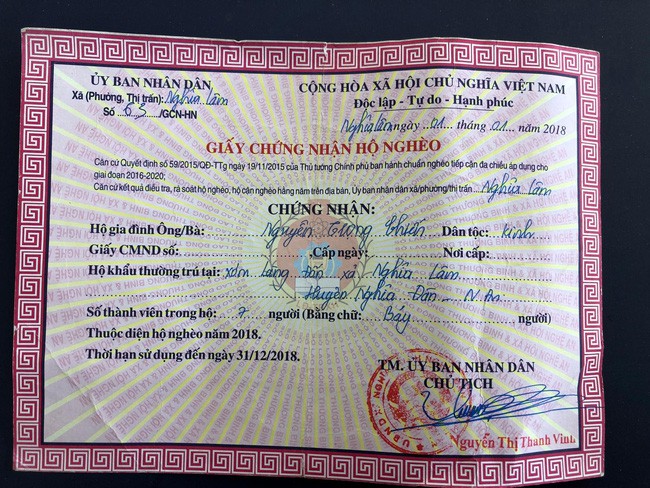 ỦY BAN NHÂN DÂN
Xã (Phường, Thị trấn): Nghĩa Lâm
Số 63 /GCN-HN
CỘNG HÒA XÃ HỘI CHỦ NGHĨA VIỆT NAM
Độc lập - Tự do - Hạnh phúc
Nghĩa Lâm ngày 01 tháng 01 năm 2018
GIẤY CHỨNG NHẬN HỘ NGHÈO
Căn cứ Quyết định số 59/2015/QĐ-TTg ngày 19/11/2015 của Thủ tướng Chính phủ ban hành chuẩn nghèo tiếp cận đa chiều áp dụng cho
giai đoạn 2016-2020;
Căn cứ kết quả điều tra, rà soát hộ nghèo, hộ cận nghèo hằng năm trên địa bàn, Ủy ban nhân dân xã/phường/thị trấn Nghĩa Lâm
CHỨNG NHẬN:
Hộ gia đình Ông/Bà: Nguyễn Trọng Dân tộc: Kinh
Giấy CMND số: Cấp ngày: Nơi cấp:
Hộ khẩu thường trú tại: xóm Làng xã Nghĩa Lâm
Huyện Nghĩa Đàn N.An
Số thành viên trong hộ: 7 người (Bằng chữ: Bảy người)
Thuộc diện hộ nghèo năm 2018.
Thời hạn sử dụng đến ngày 31/12/2018.
TM. ỦY BAN NHÂN DÂN
CHỦ TỊCH
Nguyễn Thị Thanh Vinh